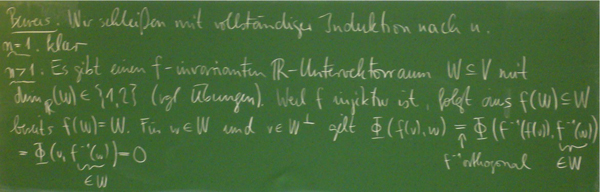 Beweis: Wir schließen mit vollständiger Induktion nach n.
n=1. klar
n>1. Es gibt einen f-invarianten ℝ-Untervektorraum W⊆V mit
dim_ℝ(W)∈{1,2} (vgl Übungen). Weil f injektiv ist, folgt aus f(W)⊆W
bereits f(W)=W. Für w∈W und v∈W^⊥ gilt Φ(f(v),w) = Φ(f^{-1}(f(v)), f^{-1}(w))
= Φ(v, f^{-1}(w)) = 0
f^{-1} orthogonal ∈W
∈W